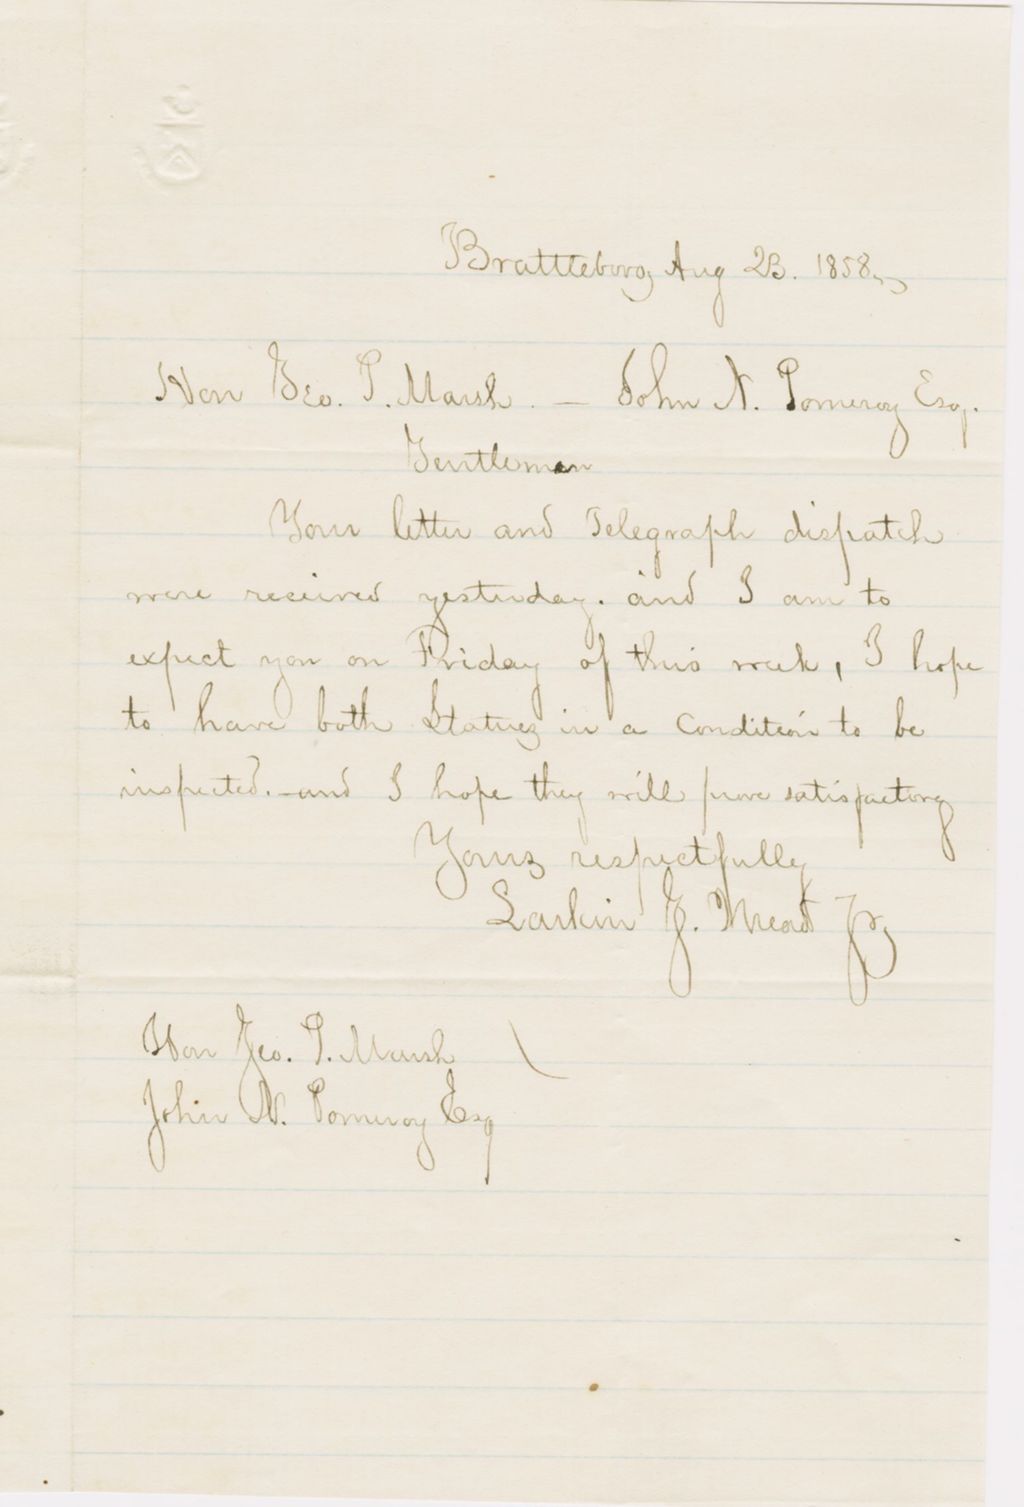 Brattleboro, Aug 23. 1858,
Hon Geo. P. Marsh. — John N. Pomeroy Esq.
Gentlemen
Your letter and Telegraph dispatch
were received yesterday. and I am to
expect you on Friday of this week, I hope
to have both Statues in a condition to be
inspected. — and I hope they will prove satisfactory
Yours respectfully
Larkin G. Mead Jr,
Hon Geo. P. Marsh
John N. Pomeroy Esq